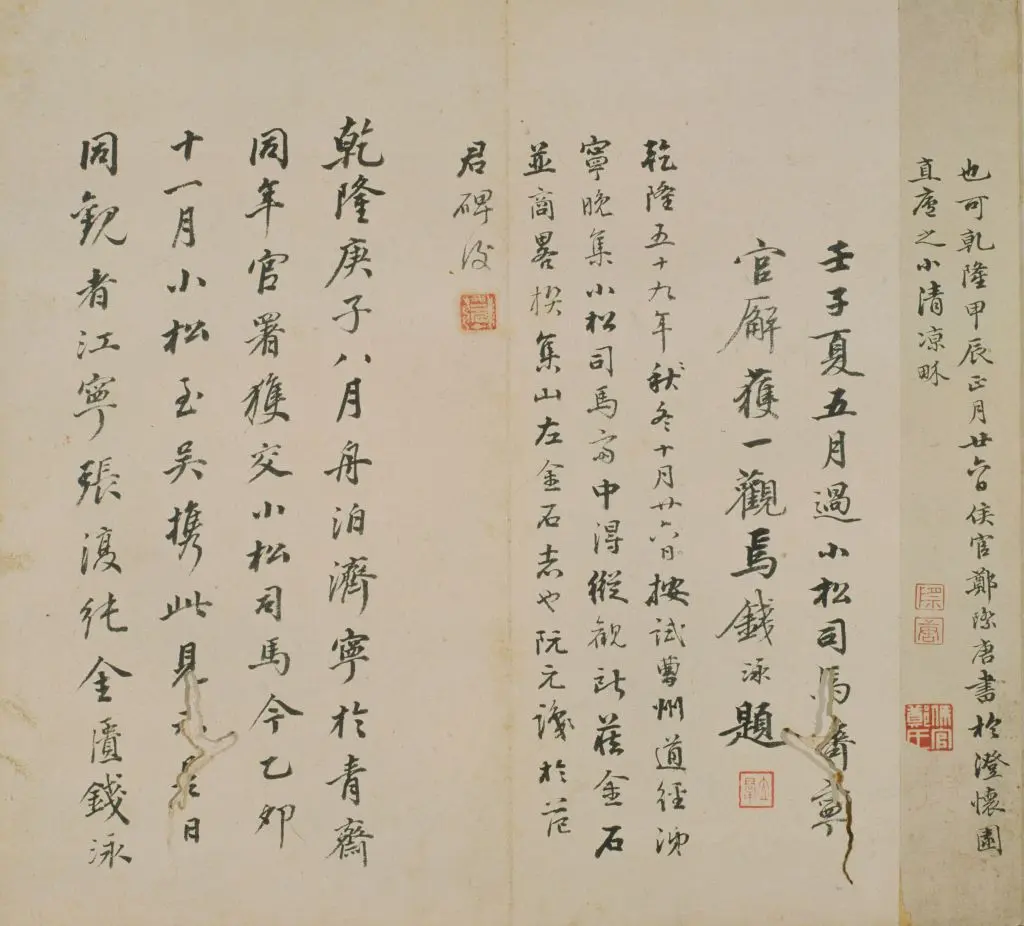 也可乾隆甲辰正月廿六日侯官鄭際唐書於澄懷園
直廬之小清涼龢
際唐
侯官鄭氏
壬子夏五月過小松司馬濟寧
官廨獲一觀焉錢泳題
乾隆五十九年秋冬十月廿六日按試曹州道經濟
寧晚集小松司馬齋中得縱觀所藏金石
並商畧撰集山左金石志也阮元識於范
君碑後
乾隆庚子八月舟泊濟寧於青齋
同年官署獲交小松司馬今乙卯
十一月小松至吳攜此見示是日
同觀者江寧張復純金匱錢泳